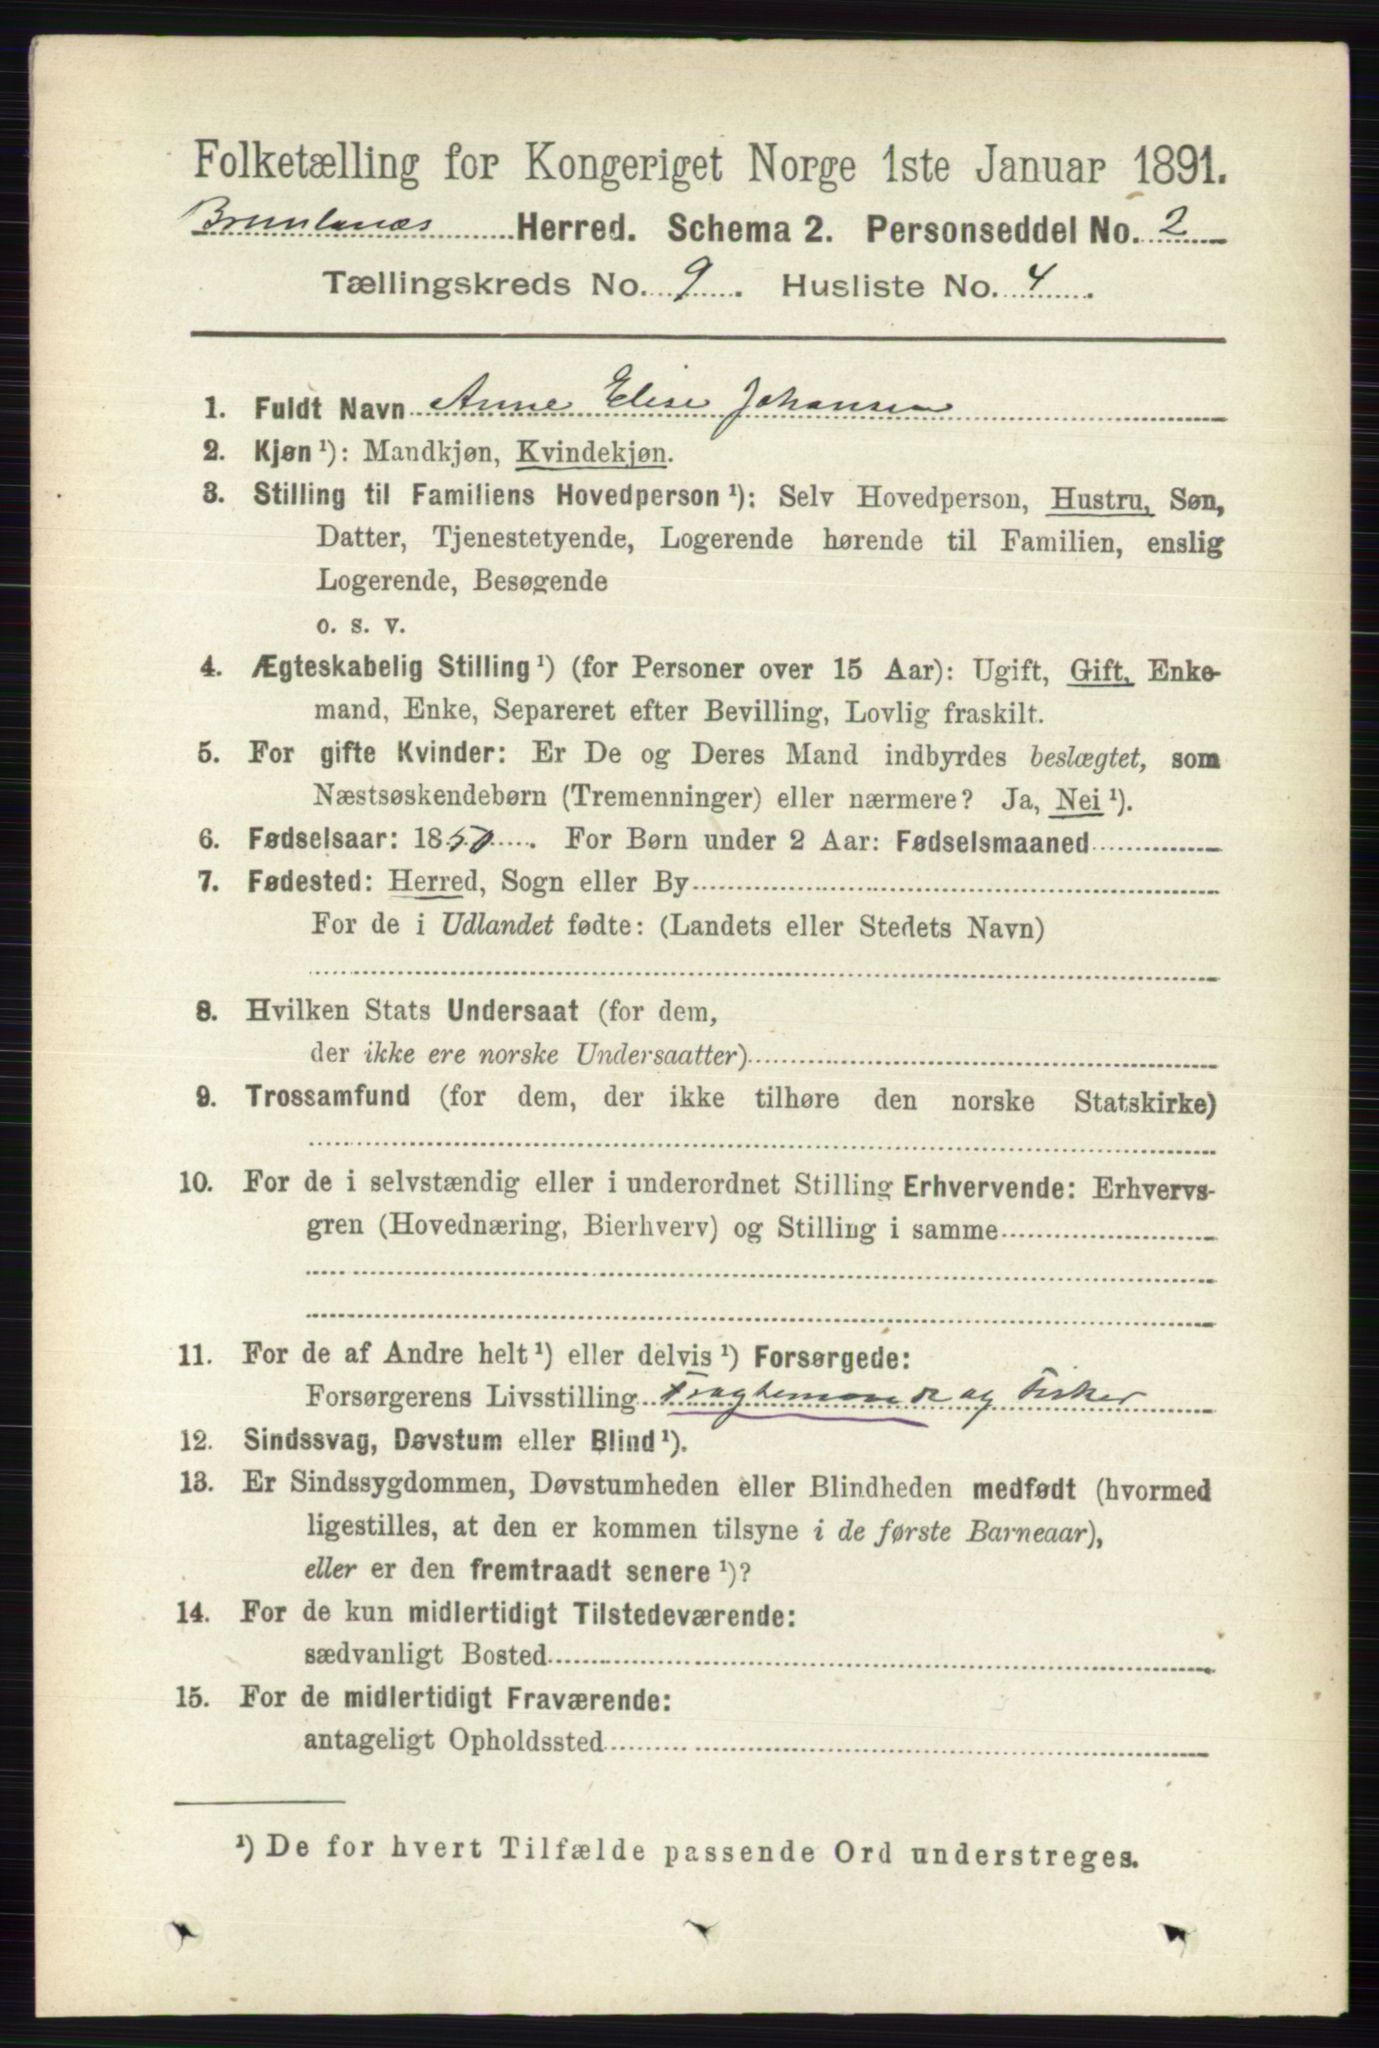 Folketælling for Kongeriget Norge 1ste Januar 1891.
Brunlanæs Herred. Schema 2. Personseddel No. 2
Tællingskreds No. 9. Husliste No. 4.
1. Fuldt Navn Anne Elise Johansen
2. Kjøn ¹): Mandkjøn, Kvindekjøn.
3. Stilling til Familiens Hovedperson ¹): Selv Hovedperson, Hustru, Søn,
Datter, Tjenestetyende, Logerende hørende til Familien, enslig
Logerende, Besøgende
o. s. v.
4. Ægteskabelig Stilling ¹) (for Personer over 15 Aar): Ugift, Gift, Enke-
mand, Enke, Separeret efter Bevilling, Lovlig fraskilt.
5. For gifte Kvinder: Er De og Deres Mand indbyrdes beslægtet, som
Næstsøskendebørn (Tremenninger) eller nærmere? Ja, Nei ¹).
6. Fødselsaar: 1850. For Børn under 2 Aar: Fødselsmaaned
7. Fødested: Herred, Sogn eller By
For de i Udlandet fødte: (Landets eller Stedets Navn)
8. Hvilken Stats Undersaat (for dem,
der ikke ere norske Undersaatter)
9. Trossamfund (for dem, der ikke tilhøre den norske Statskirke)
10. For de i selvstændig eller i underordnet Stilling Erhvervende: Erhvervs-
gren (Hovednæring, Bierhverv) og Stilling i samme
11. For de af Andre helt ¹) eller delvis ¹) Forsørgede:
Forsørgerens Livsstilling og Fisker
12. Sindssvag, Døvstum eller Blind ¹).
13. Er Sindssygdommen, Døvstumheden eller Blindheden medfødt (hvormed
ligestilles, at den er kommen tilsyne i de første Barneaar),
eller er den fremtraadt senere ¹)?
14. For de kun midlertidigt Tilstedeværende:
sædvanligt Bosted
15. For de midlertidigt Fraværende:
antageligt Opholdssted
¹) De for hvert Tilfælde passende Ord understreges.